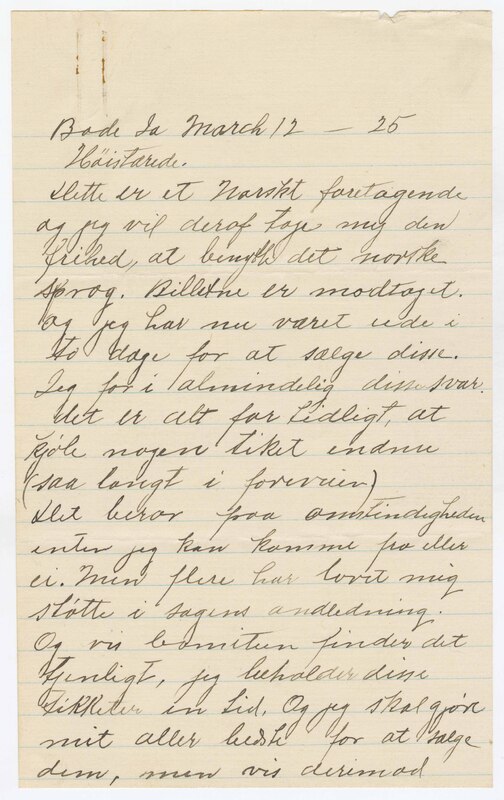 Bode Ia March 12 – 25
Høistærede.
Dette er et Norskt foretagende
og jeg vil deraf tage mig den
frihed, at benytte det norske
sprog. Billetne er modtaget.
og jeg har nu været ude i
to dage for at sælge disse.
Jeg for i almindelig disse svar.
det er alt for tidligt, at
kjøbe nogen tiket endnu
(saa langt i forveien)
Det beror paa omstindigheden
enten jeg kan komme fra eller
ei. Men flere har lovit mig
støtte i sagens andledning.
Og vis comiteen finder det
tjenligt, jeg beholder disse
tikketer en tid. Og jeg skal gjøre
mit aller bedste for at sælge
dem, men vis derimod